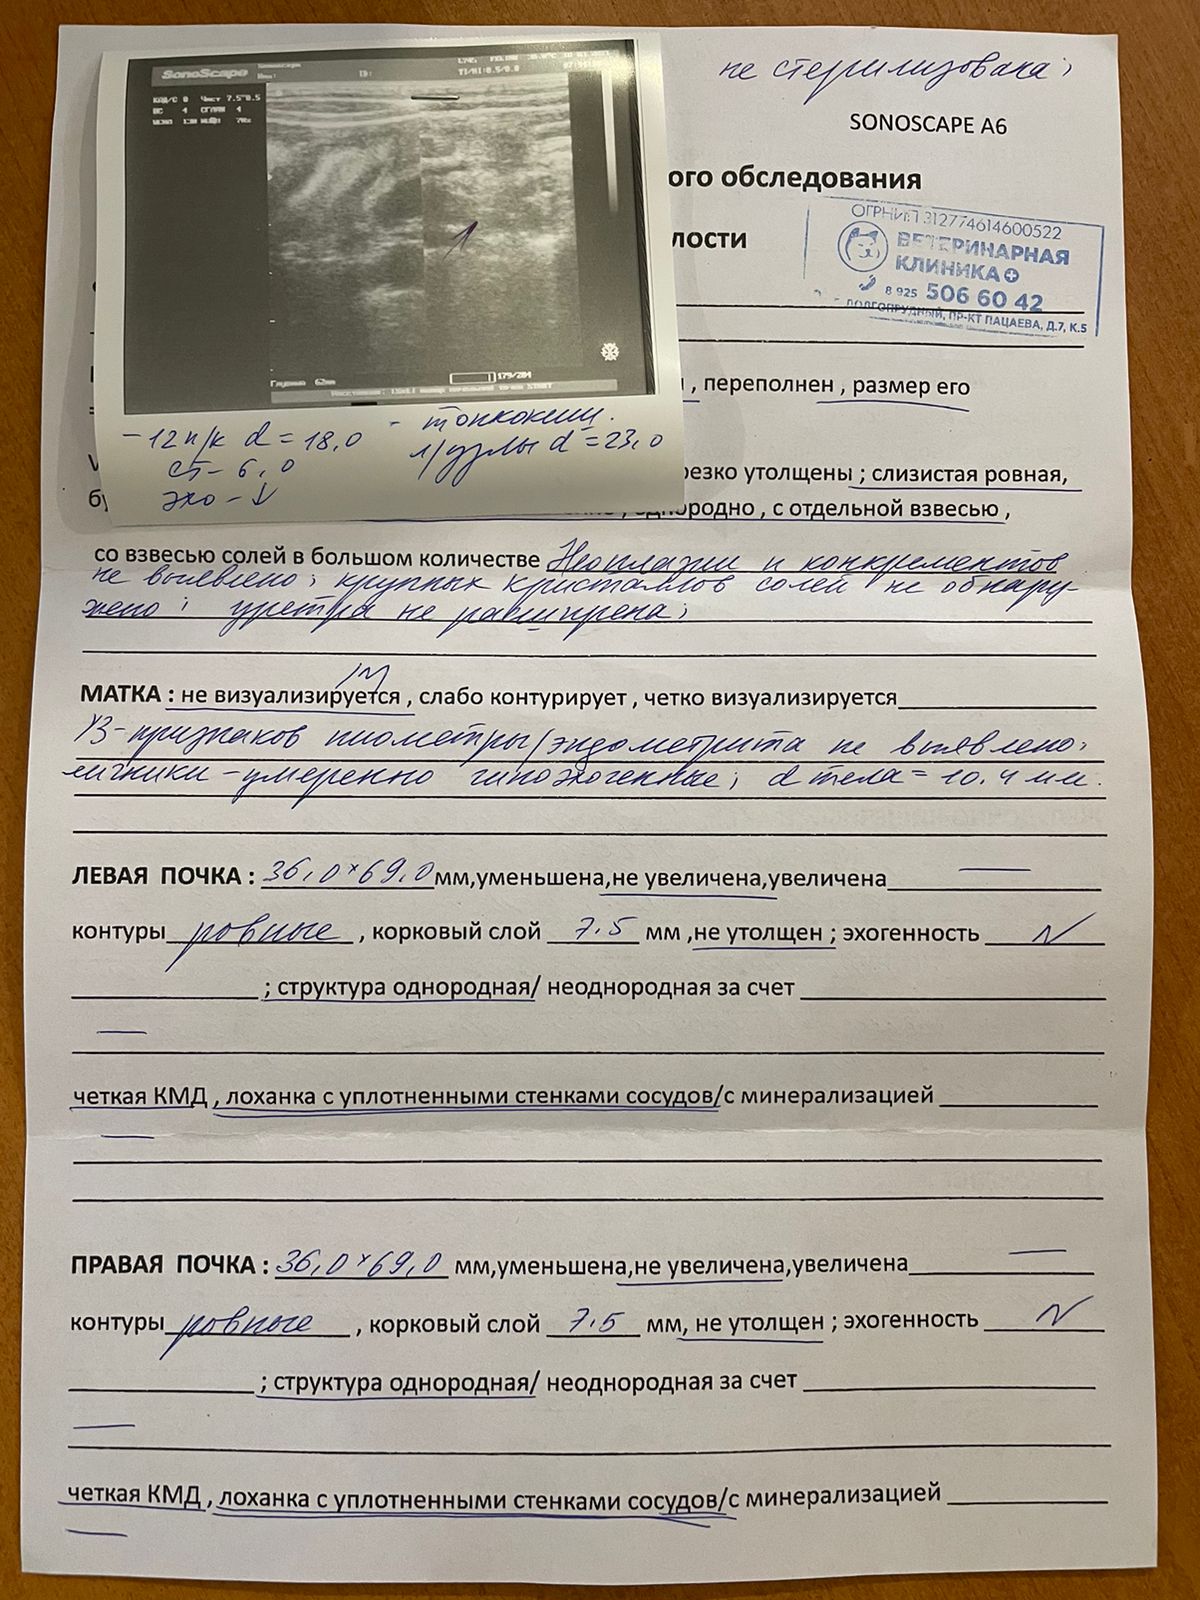 не стерилизована;
SONOSCAPE A6
ого обследования
лости
ОГРНИП 312774614600522
ВЕТЕРИНАРНАЯ
КЛИНИКА+
8 925 506 60 42
ДОЛГОПРУДНЫЙ, ПР-КТ ПАЦАЕВА, Д.7, К.5
SonoScape
Глубина 62мм
179/204
- 12п/к d = 18,0
ст- 6,0
эхо - ↓
- тонкокиш.
л/узлы d = 23,0
, переполнен , размер его
резко утолщены ; слизистая ровная,
однородно , с отдельной взвесью ,
со взвесью солей в большом количестве Неоплазии и конкрементов
не выявлено; крупных кристаллов солей не обнару-
жено; уретра не расширена;
МАТКА : не визуализируется , слабо контурирует , четко визуализируется
УЗ-признаков пиометры/эндометрита не выявлено;
яичники - умеренно гипоэхогенные; d тела = 10.4 мм.
ЛЕВАЯ ПОЧКА : 36,0×69,0 мм,уменьшена,не увеличена,увеличена —
контуры ровные , корковый слой 7.5 мм ,не утолщен ; эхогенность N
; структура однородная/ неоднородная за счет
—
четкая КМД , лоханка с уплотненными стенками сосудов/с минерализацией
—
ПРАВАЯ ПОЧКА : 36,0×69,0 мм,уменьшена,не увеличена,увеличена —
контуры ровные , корковый слой 7.5 мм, не утолщен ; эхогенность N
; структура однородная/ неоднородная за счет
—
четкая КМД , лоханка с уплотненными стенками сосудов/с минерализацией
—